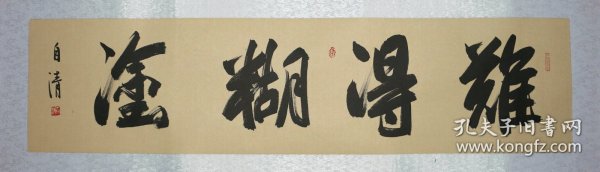 難得糊塗
自清
孔夫子旧書网
www.kongfz.com